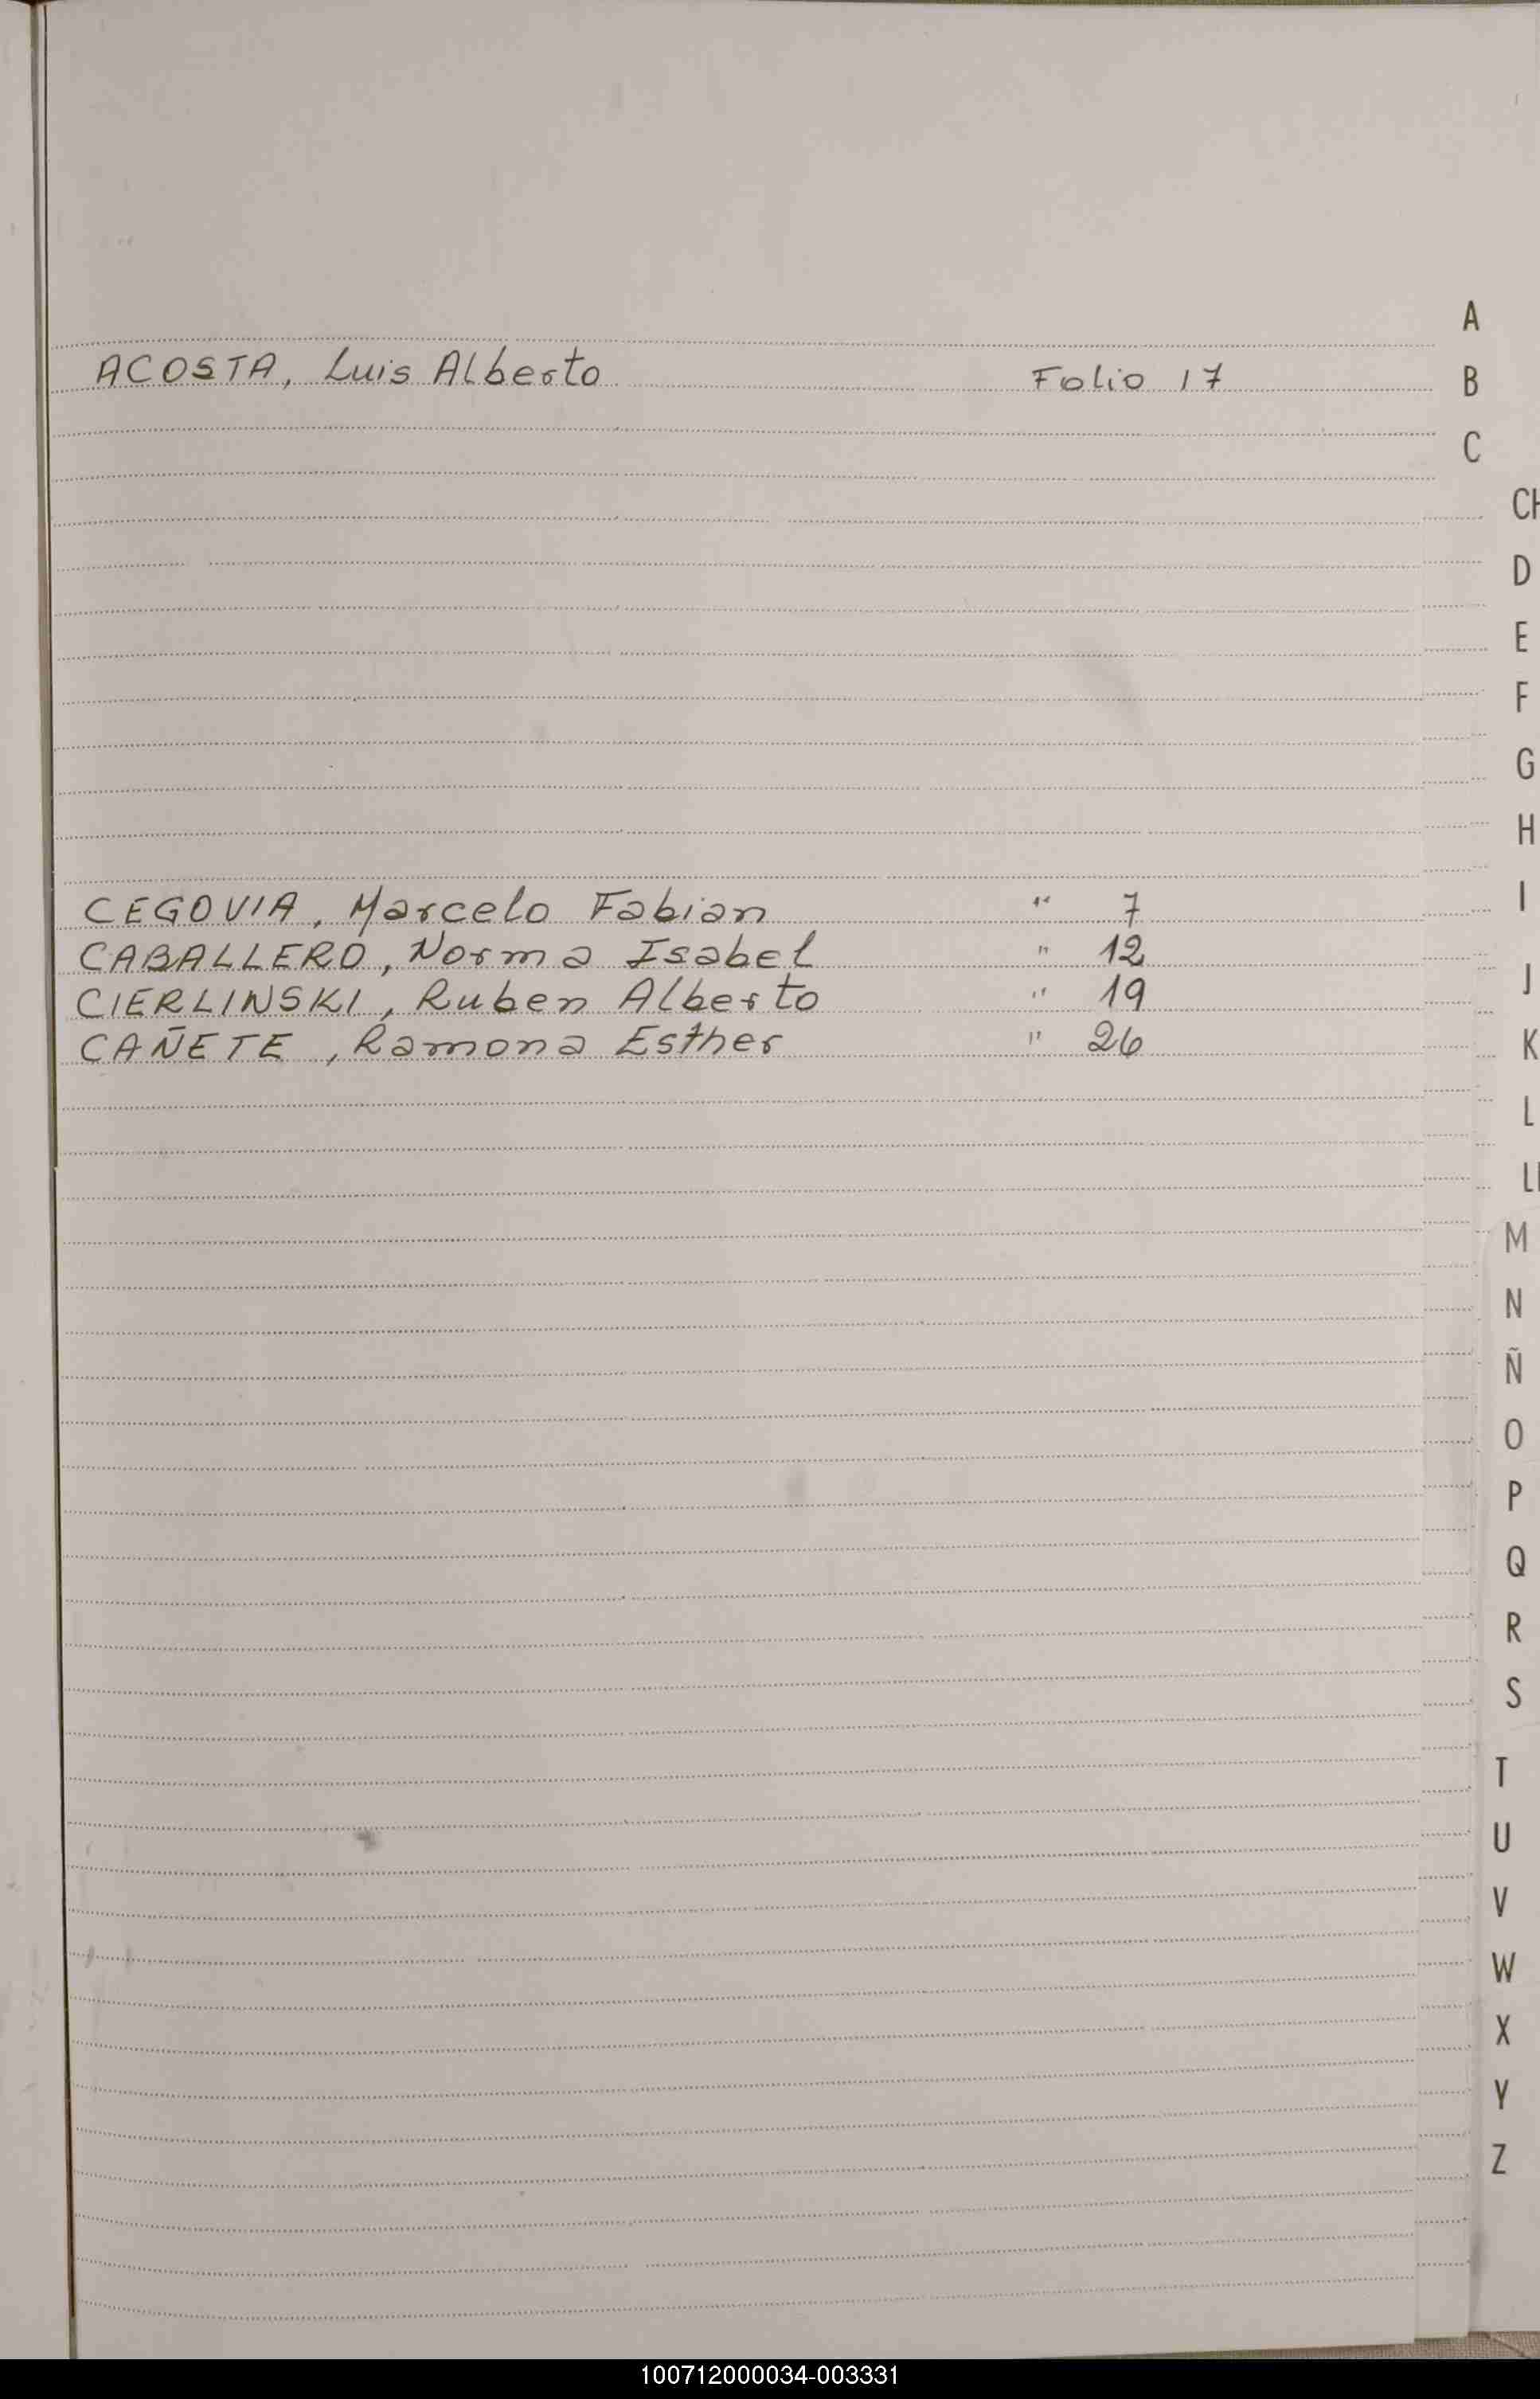 A
ACOSTA, Luis Alberto Folio 17
B
C
CH
D
E
F
G
H
I
CEGOVIA, Marcelo Fabian " 7
CABALLERO, Norma Isabel " 12
J
CIERLINSKI, Ruben Alberto " 19
CAÑETE, Ramona Esther " 26
K
L
Ll
M
N
Ñ
O
P
Q
R
S
T
U
V
W
X
Y
Z
100712000034-003331